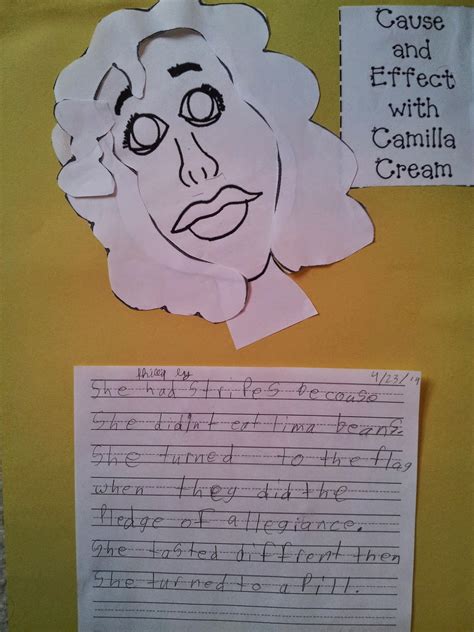 Cause
and
Effect
with
Camilla
Cream
9/23/14
She had stripes becouse
She didnt eat lima beans.
She turned to the flag
when they did the
Pledge of allegiance.
She tasted diffrent then
She turned to a Pill.